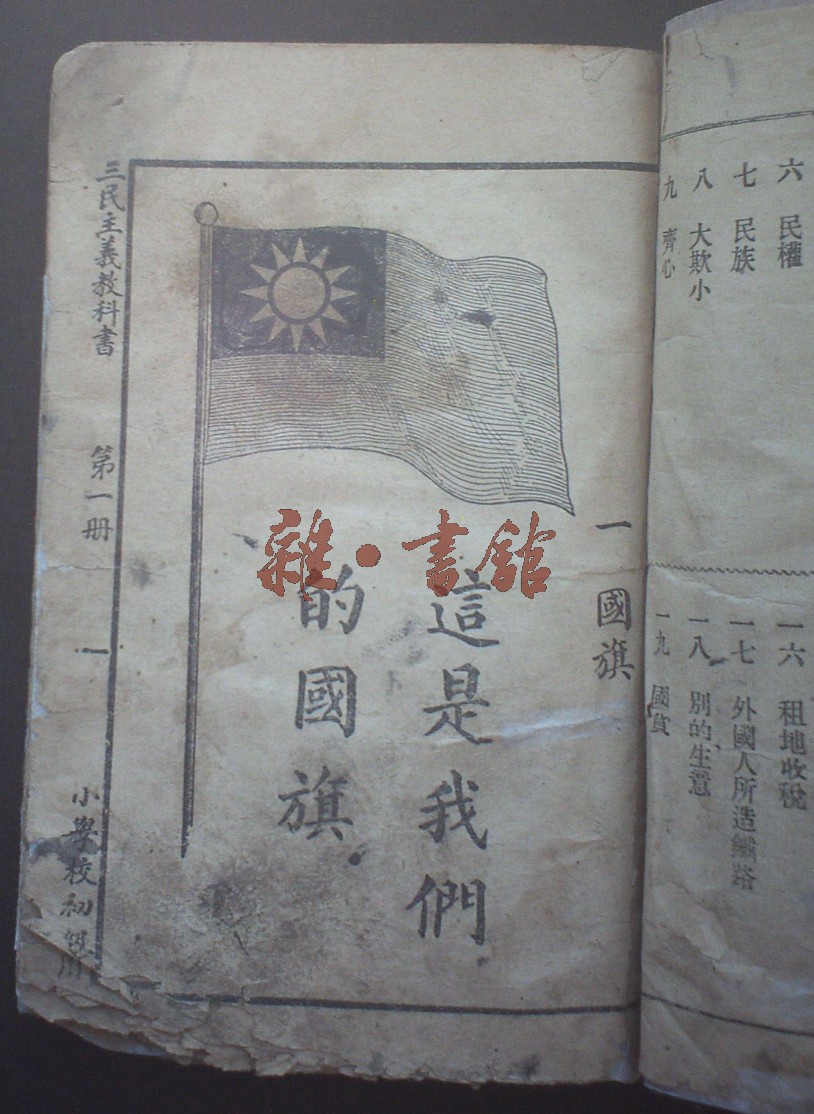 六 民權
七 民族
八 大欺小
九 齊心
一六 租地收稅
一七 外國人所造鐵路
一八 別的生意
一九 國貨
一 國旗
這是我們
的國旗
雜·書館
三民主義教科書 第一册 一 小學校初級